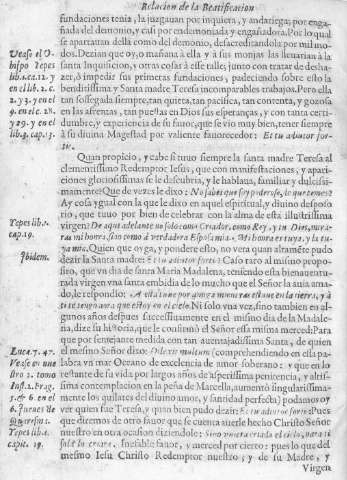 Relacion de la Beatificacion
fundaciones tenia, la juzgauan por inquieta, y andariega; por enga-
ñada del demonio, y casi por endemoniada y engañadora. Por lo qual
se apartauan della como del demonio, desacreditandola por mil mo-
dos. Dezian que oy, o mañana à ella y à sus monjas las lleuarian à la
santa Inquisicion, y otras cosas à esse talle; junto con tratar de desha-
zer, ò impedir sus primeras fundaciones, padeciendo sobre esto la
benditissima y Santa madre Teresa incomparables trabajos. Pero ella
tan sossegada siempre, tan quieta, tan pacifica, tan contenta, y gozosa
en las afrentas, tan puesta en Dios sus esperanças, y con tanta certi-
dumbre, y experiencia de su fauor, que se vio muy bien, tener siempre
à su diuina Magestad por valiente fauorecedor: Et tu adiutor for-
tis.
Vease el O-
bispo Yepes
lib.1.c.12. y
en el lib. 2. c.
2. y 3. y en el
9. en el c. 28.
y 29. y en el
lib.3. cap. 13.
Quan propicio, y cabe si tuuo siempre la santa madre Teresa al
clementissimo Redemptor Iesus, que con manifestaciones, y apari-
ciones gloriosissimas se le descubria, y le hablaua, familiar y dulcissi-
mamente! Que de vezes le dixo: No sabes que soy poderoso, de que temes?
Ay cosa ygual con la que le dixo en aquel espiritual, y diuino desposo-
rio, que tuuo por bien de celebrar con la alma de esta illustrissima
virgen? De aqui adelante no solo como Criador, como Rey, y tu Dios, mira-
ras mi honra, sino como a verdadera Esposa mia. Mi honra es tuya, y la tu-
ya mia. Quien que oyga, y pondere esto, no vera quan altamẽte pudo
dezir la Santa madre: Et tu adiutor fortis? Caso raro al mismo propo-
sito, que vn dia de santa Maria Madalena, teniendo esta bienauentu-
rada virgen vna santa embidia de lo mucho que el Señor la auia ama-
do, le respondio: A esta tuue por amiga mientras estuue en la tierra, y à
ti te tengo aora que estoy en el cielo. Ni solo vna vez, sino tambien en al-
gunos años despues successiuamente en el mismo dia de la Madale-
na, dize su historia, que le confirmò el Señor essa misma merced: Para
que por semejante medida con tan auentajadissima Santa, de quien
el mesmo Señor dixo: Dilexit multum (comprehendiendo en essa pa-
labra vn mar Oceano de excelencia de amor soberano: y que en lo
restante de su vida por largos años de asperissima penitencia, y altis-
sima contemplacion en la peña de Marcella, aumentò singularissima-
mente los quilates del diuino amor, y santidad perfeta) podamos oy
ver quien fue Teresa, y quan bien pudo dezir: Et tu adiutor fortis? Pues
que diremos de otro fauor que se cuenta auerle hecho Christo Señor
nuestro en otra ocasion diziendole: Sino huuiera criado el cielo, para ti
sola lo criara. Inefable fauor, y merced por cierto: pues lo que del
mesmo Iesu Christo Redemptor nuestro; y de su Madre, y
Yepes lib. 1.
cap.19.
Ibidem.
Luca. 7. 47.
Virgen